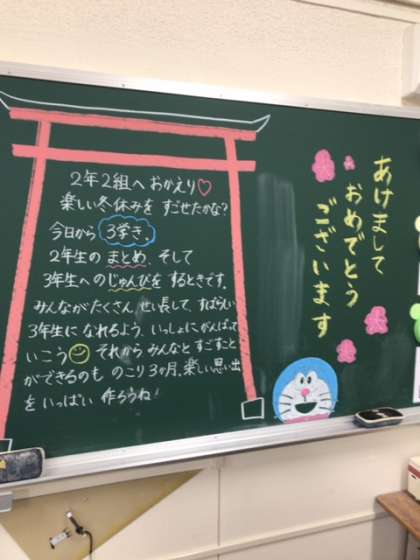 2年2組へおかえり♡
楽しい冬休みを すごせたかな?
今日から 3学き。
2年生の まとめ、そして
3年生へのじゅんびを するときです。
みんながたくさん せい長して、すばらしい
3年生に なれるよう、いっしょにがんばって
いこう それから みんなと すごすこと
ができるのも のこり 3ヵ月、楽しい思い出
を いっぱい 作ろうね!
あけまして
おめでとう
ございます